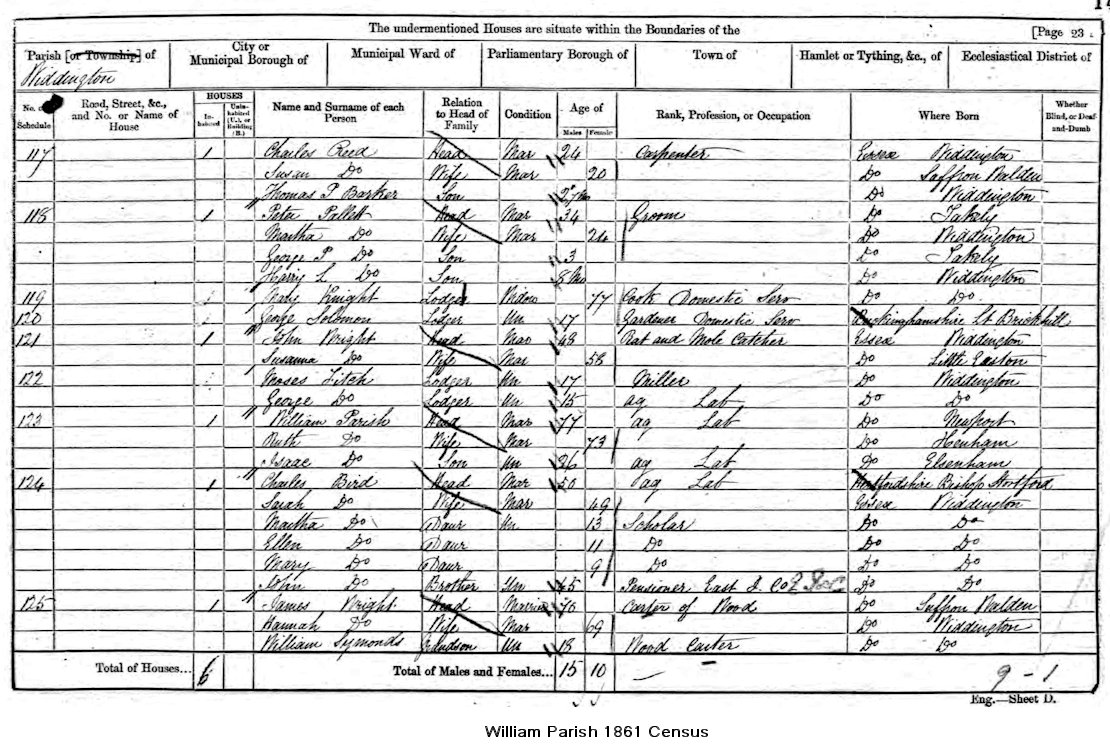 The undermentioned Houses are situate within the Boundaries of the
[Page 23
Parish [or Township] of
Widdington
City or
Municipal Borough of
Municipal Ward of
Parliamentary Borough of
Town of
Hamlet or Tything, &c., of
Ecclesiastical District of
No. of
Schedule
Road, Street, &c.,
and No. or Name of
House
HOUSES
In-
habited
Unin-
habited
(U.), or
Building
(B.)
Name and Surname of each
Person
Relation
to Head of
Family
Condition
Age of
Males
Females
Rank, Profession, or Occupation
Where Born
Whether
Blind, or Deaf-
and-Dumb
117 1 Charles Reed Head Mar 24 Carpenter Essex Widdington
Susan Do Wife Mar 20 Do Saffron Walden
Thomas P Barker Son Do Widdington
118 1 Peter Pallett Head Mar 34 Groom Do Takely
Martha Do Wife Mar 24 Do Widdington
George P Do Son 3 Do Takely
Harry L Do Son 8 Mo Do Widdington
119 Mary Knight Lodger Widow 77 Cook Domestic Serv Do Do
120 George Solomon Lodger Un 17 Gardener Domestic Serv Buckinghamshire Lt Brickhill
121 1 John Wright Head Mar 48 Rat and Mole Catcher Essex Widdington
Susanna Do Wife Mar 58 Do Little Easton
122 Moses Fitch Lodger Un 17 Miller Do Widdington
George Do Lodger Un 15 ag Lab Do Do
123 1 William Parish Head Mar 77 ag Lab Do Newport
Ruth Do Wife Mar 73 Do Henham
Isaac Do Son Un 36 ag Lab Do Elsenham
124 1 Charles Bird Head Mar 50 ag Lab Hertfordshire Bishop Stortford
Sarah Do Wife Mar 49 Essex Widdington
Martha Do Daur Un 13 Scholar Do Do
Ellen Do Daur 11 Do Do Do
Mary Do Daur 9 Do Do Do
John Do Brother Un 45 Pensioner East I. Co Do Do
125 1 James Wright Head Married 70 Carter of Wood Do Saffron Walden
Hannah Do Wife Mar 69 Do Widdington
William Symonds Grandson Un 18 Wood Carter Do Do
Total of Houses... 6 Total of Males and Females... 15 10
9 - 1
Eng.—Sheet D.
William Parish 1861 Census